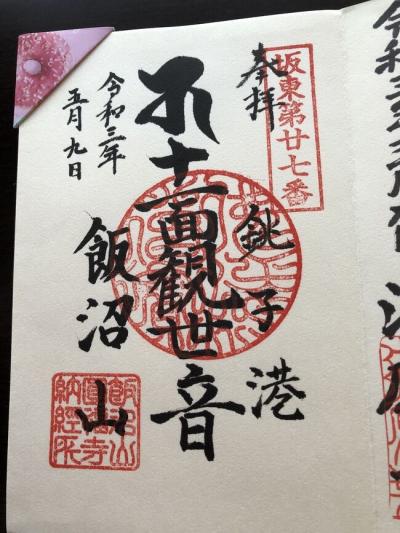 坂東第廿七番
奉拝
銚子港
十一面観世音
飯沼山
令和三年
五月九日
飯沼山
圓福寺
納経所